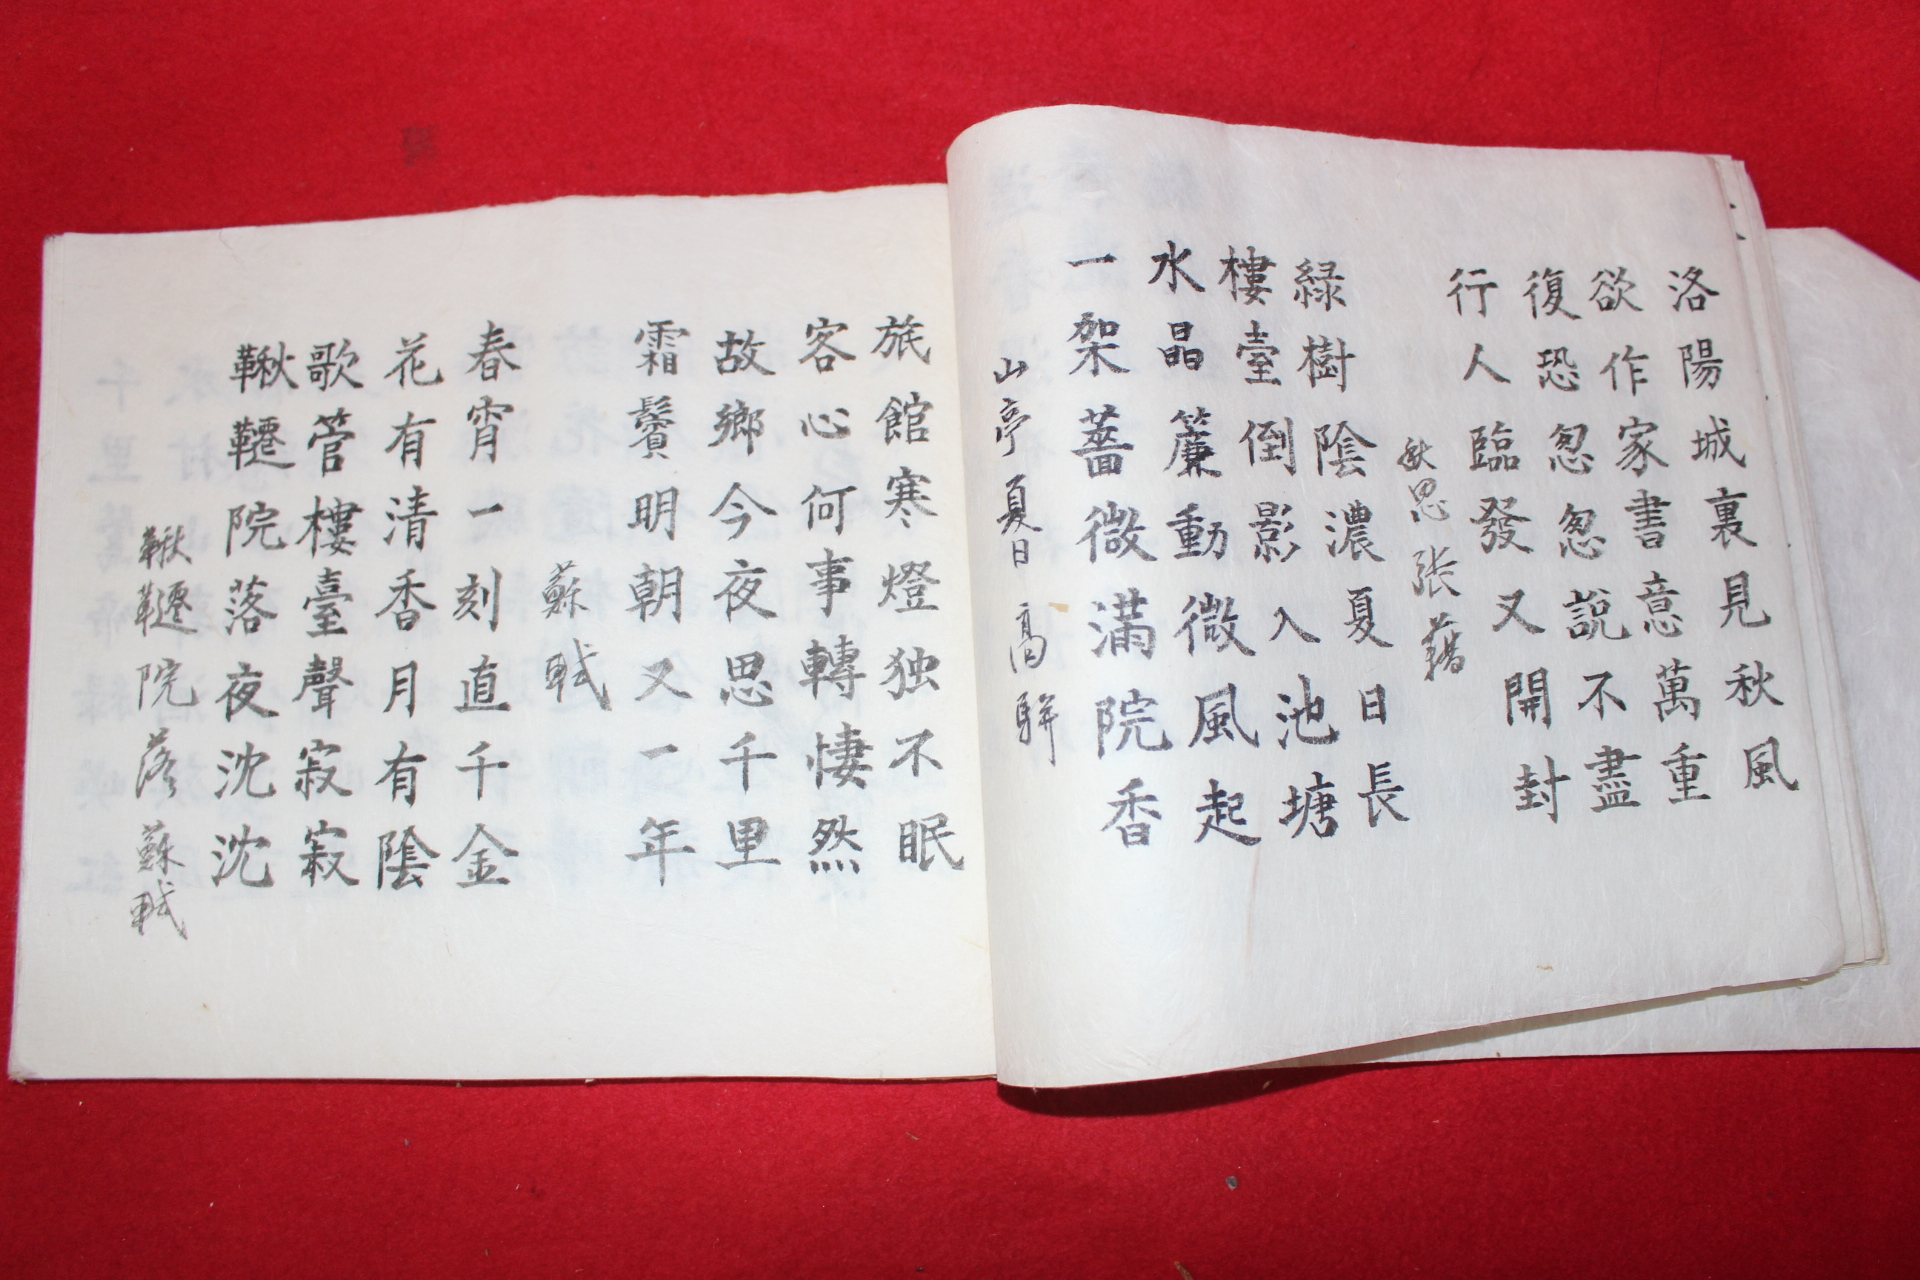 洛陽城裏見秋風
欲作家書意萬重
復恐忽忽說不盡
行人臨發又開封
秋思 張籍
緑樹陰濃夏日長
樓臺倒影入池塘
水晶簾動微風起
一架薔薇滿院香
山亭夏日 高駢
旅館寒燈独不眠
客心何事轉悽然
故鄉今夜思千里
霜鬢明朝又一年
蘇軾
春宵一刻直千金
花有清香月有陰
歌管樓臺聲寂寂
鞦韆院落夜沈沈
鞦韆院落 蘇軾